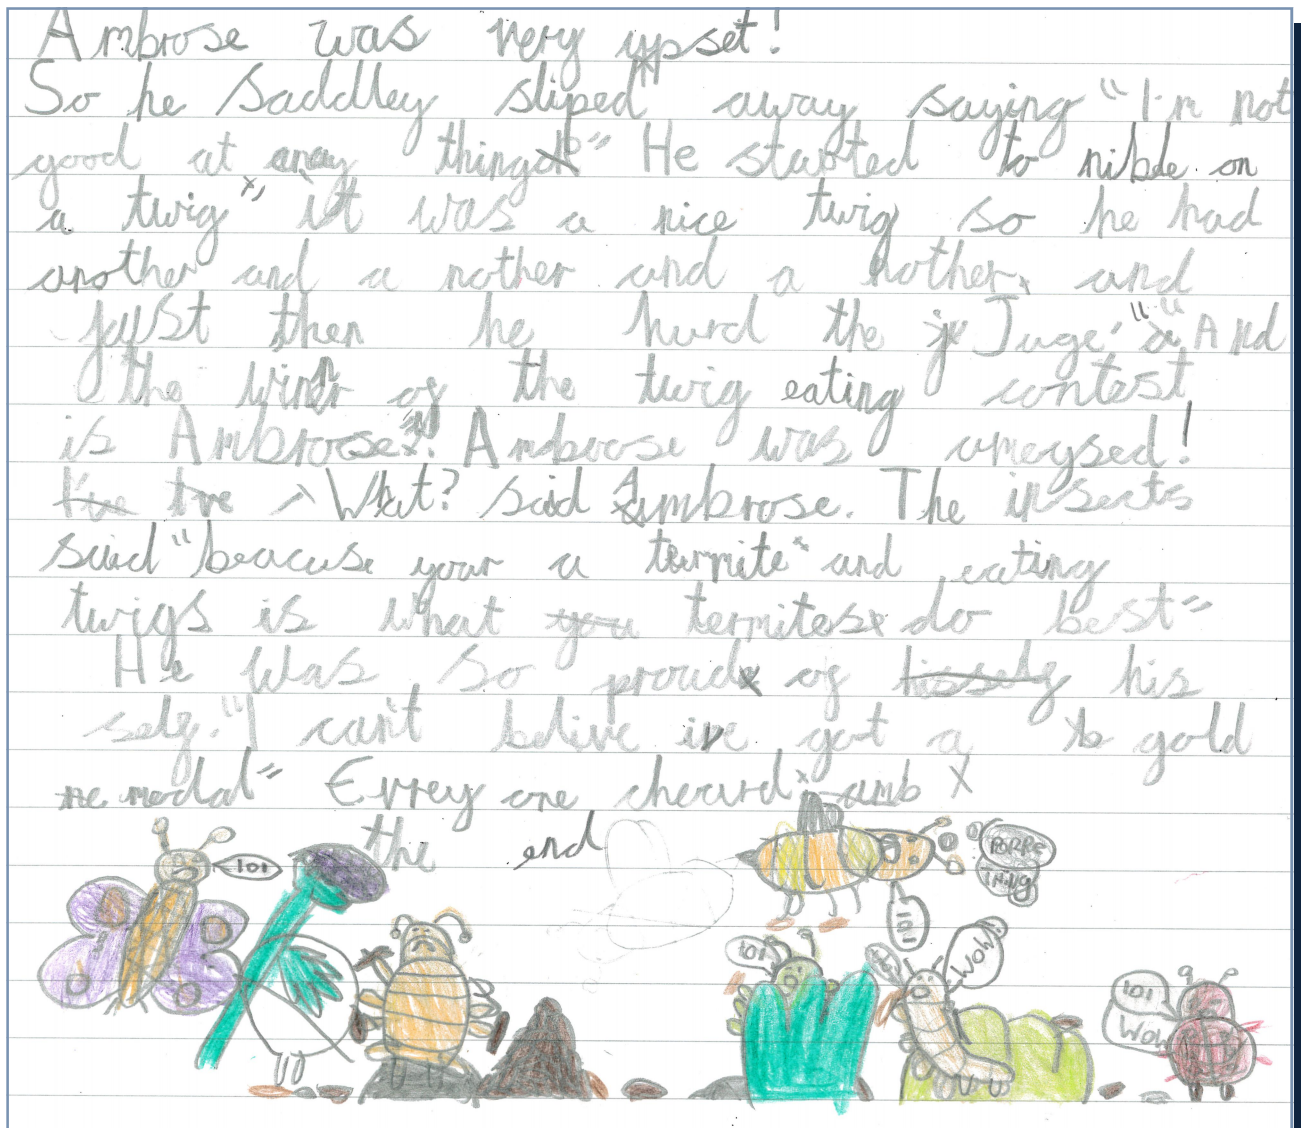 Ambrose was very upset!
So he saddley sliped away saying "I'm not
good at any thing" He started to nibble on
a twig, it was a nice twig so he had
another and a nother and a nother. and
just then he hurd the Juge "And
the winr of the twig eating contest
is Ambrose". Ambrose was umeysed!
I've Ive What? said Ambrose. The insects
said "beacuse your a termite and eating
twigs is what you termites do best"
He was so proud of hisself his
self. "I can't belive ive got a gold
medal" Evrey one cheard
the end
101
PoPPe
ining
101
101
Wow
101
Wow